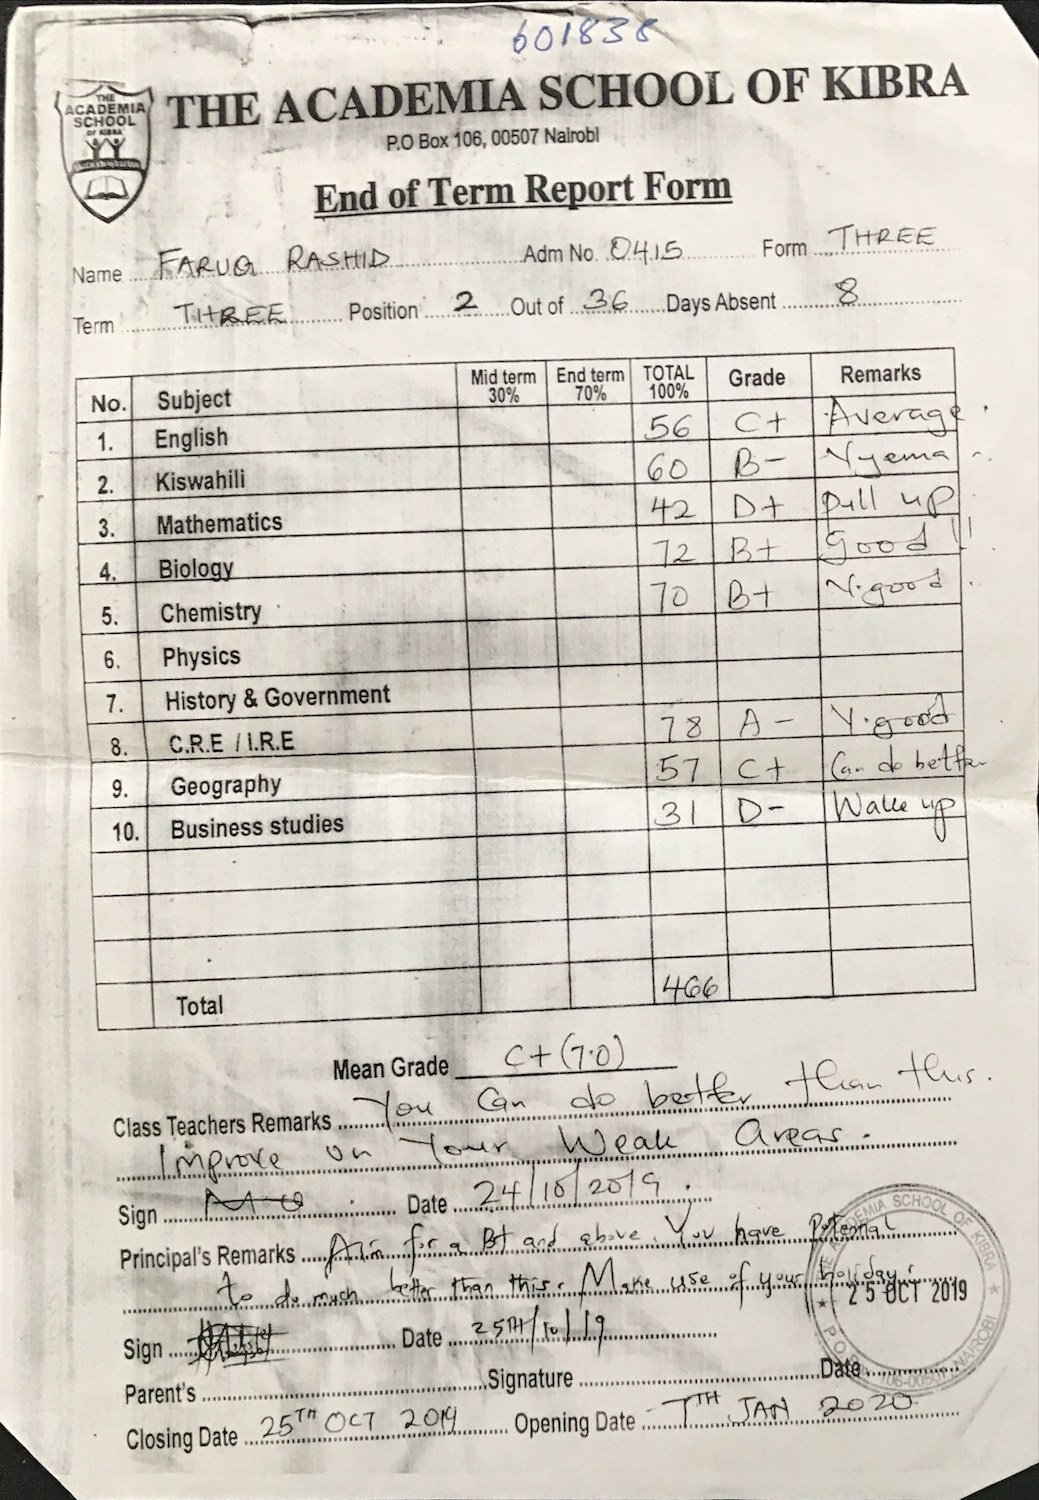 601838
THE ACADEMIA SCHOOL OF KIBRA
THE ACADEMIA SCHOOL OF KIBRA
P.O Box 106, 00507 Nairobi
End of Term Report Form
Name FARUQ RASHID Adm No. 0415 Form THREE
Term THREE Position 2 Out of 36 Days Absent 8
No. Subject Mid term 30% End term 70% TOTAL 100% Grade Remarks
1. English 56 C+ Average.
2. Kiswahili 60 B- Vyema
3. Mathematics 42 D+ Pull up
4. Biology 72 B+ Good!!
5. Chemistry 70 B+ V.good.
6. Physics
7. History & Government
8. C.R.E / I.R.E 78 A- V.good
9. Geography 57 C+ Can do better
10. Business studies 31 D- Wake up
Total 466
Mean Grade C+ (7.0)
Class Teachers Remarks You Can do better than this.
Improve on Your Weak Areas.
Sign Date 24/10/2019.
Principal's Remarks Aim for a B+ and above. You have Potential
to do much better than this. Make use of your holiday.
Sign Date 25TH/10/19
Parent's Signature Date
Closing Date 25TH OCT 2019 Opening Date 7TH JAN 2020
THE ACADEMIA SCHOOL OF KIBRA
25 OCT 2019
P.O. 106-00507, NAIROBI